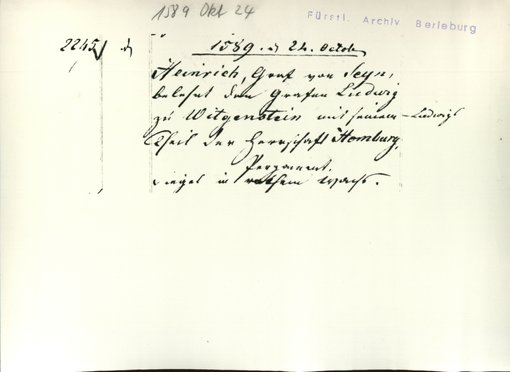 1589 Okt 24
Fürstl. Archiv Berleburg
2245 d
1589. d 24. Octob.
Heinrich, Graf von Seyn,
belehnt den Grafen Ludwig
zu Witgenstein mit seinem - Ludwigs
Theil der Herrschaft Homburg.
Pergament.
Siegel in rothem Wachs.